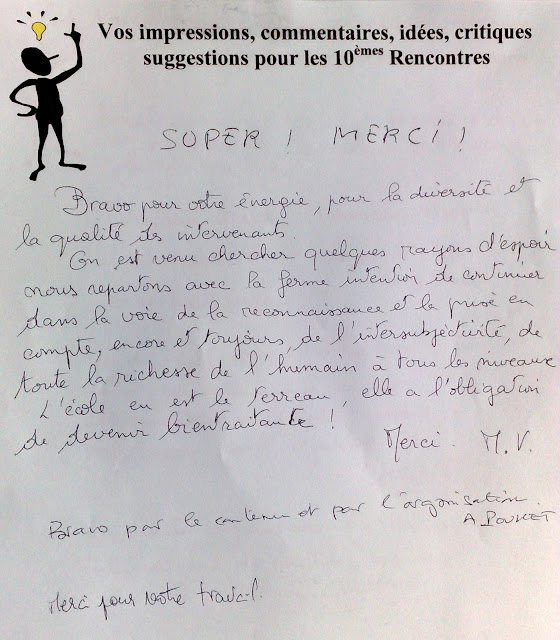 Vos impressions, commentaires, idées, critiques
suggestions pour les 10èmes Rencontres
SUPER ! MERCI !
Bravo pour votre énergie, pour la diversité et
la qualité des intervenants.
On est venu chercher quelques rayons d'espoir
nous repartons avec la ferme intention de continuer
dans la voie de la reconnaissance et la prise en
compte, encore et toujours, de l'intersubjectivité, de
toute la richesse de l'humain à tous les niveaux
L'école en est le terreau, elle a l'obligation
de devenir bientraitante !
Merci. M.V.
Bravo par le contenu et par l'organisation.
A
Merci pour votre travail.